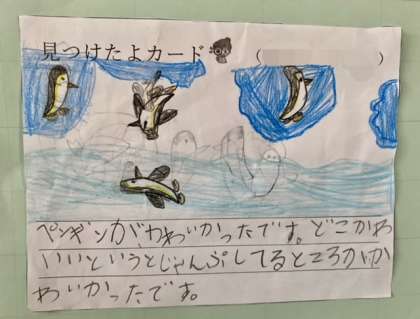 見つけたよカード
（ ）
ペンギンが、かわいかったです。どこがかわ
いいというとじゃんぷしてるところがか
わいかったです。